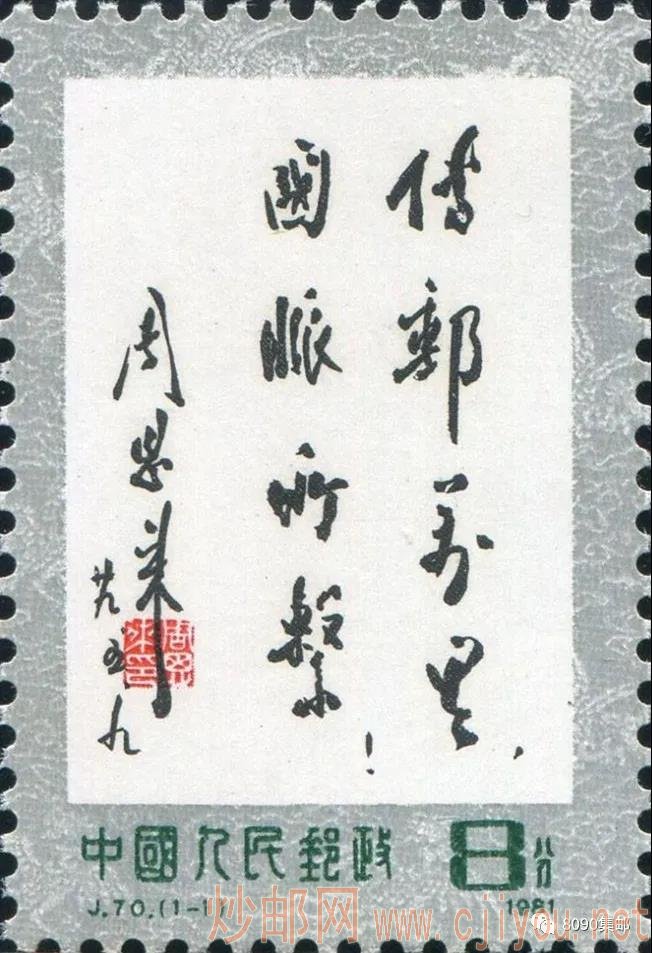 傳郵萬里,
國脈所繫!
周恩來
廿九五九
周恩來印
中國人民郵政 8分
J.70.(1-1) 1981
炒邮网 www.cjiyou.net
8090集邮